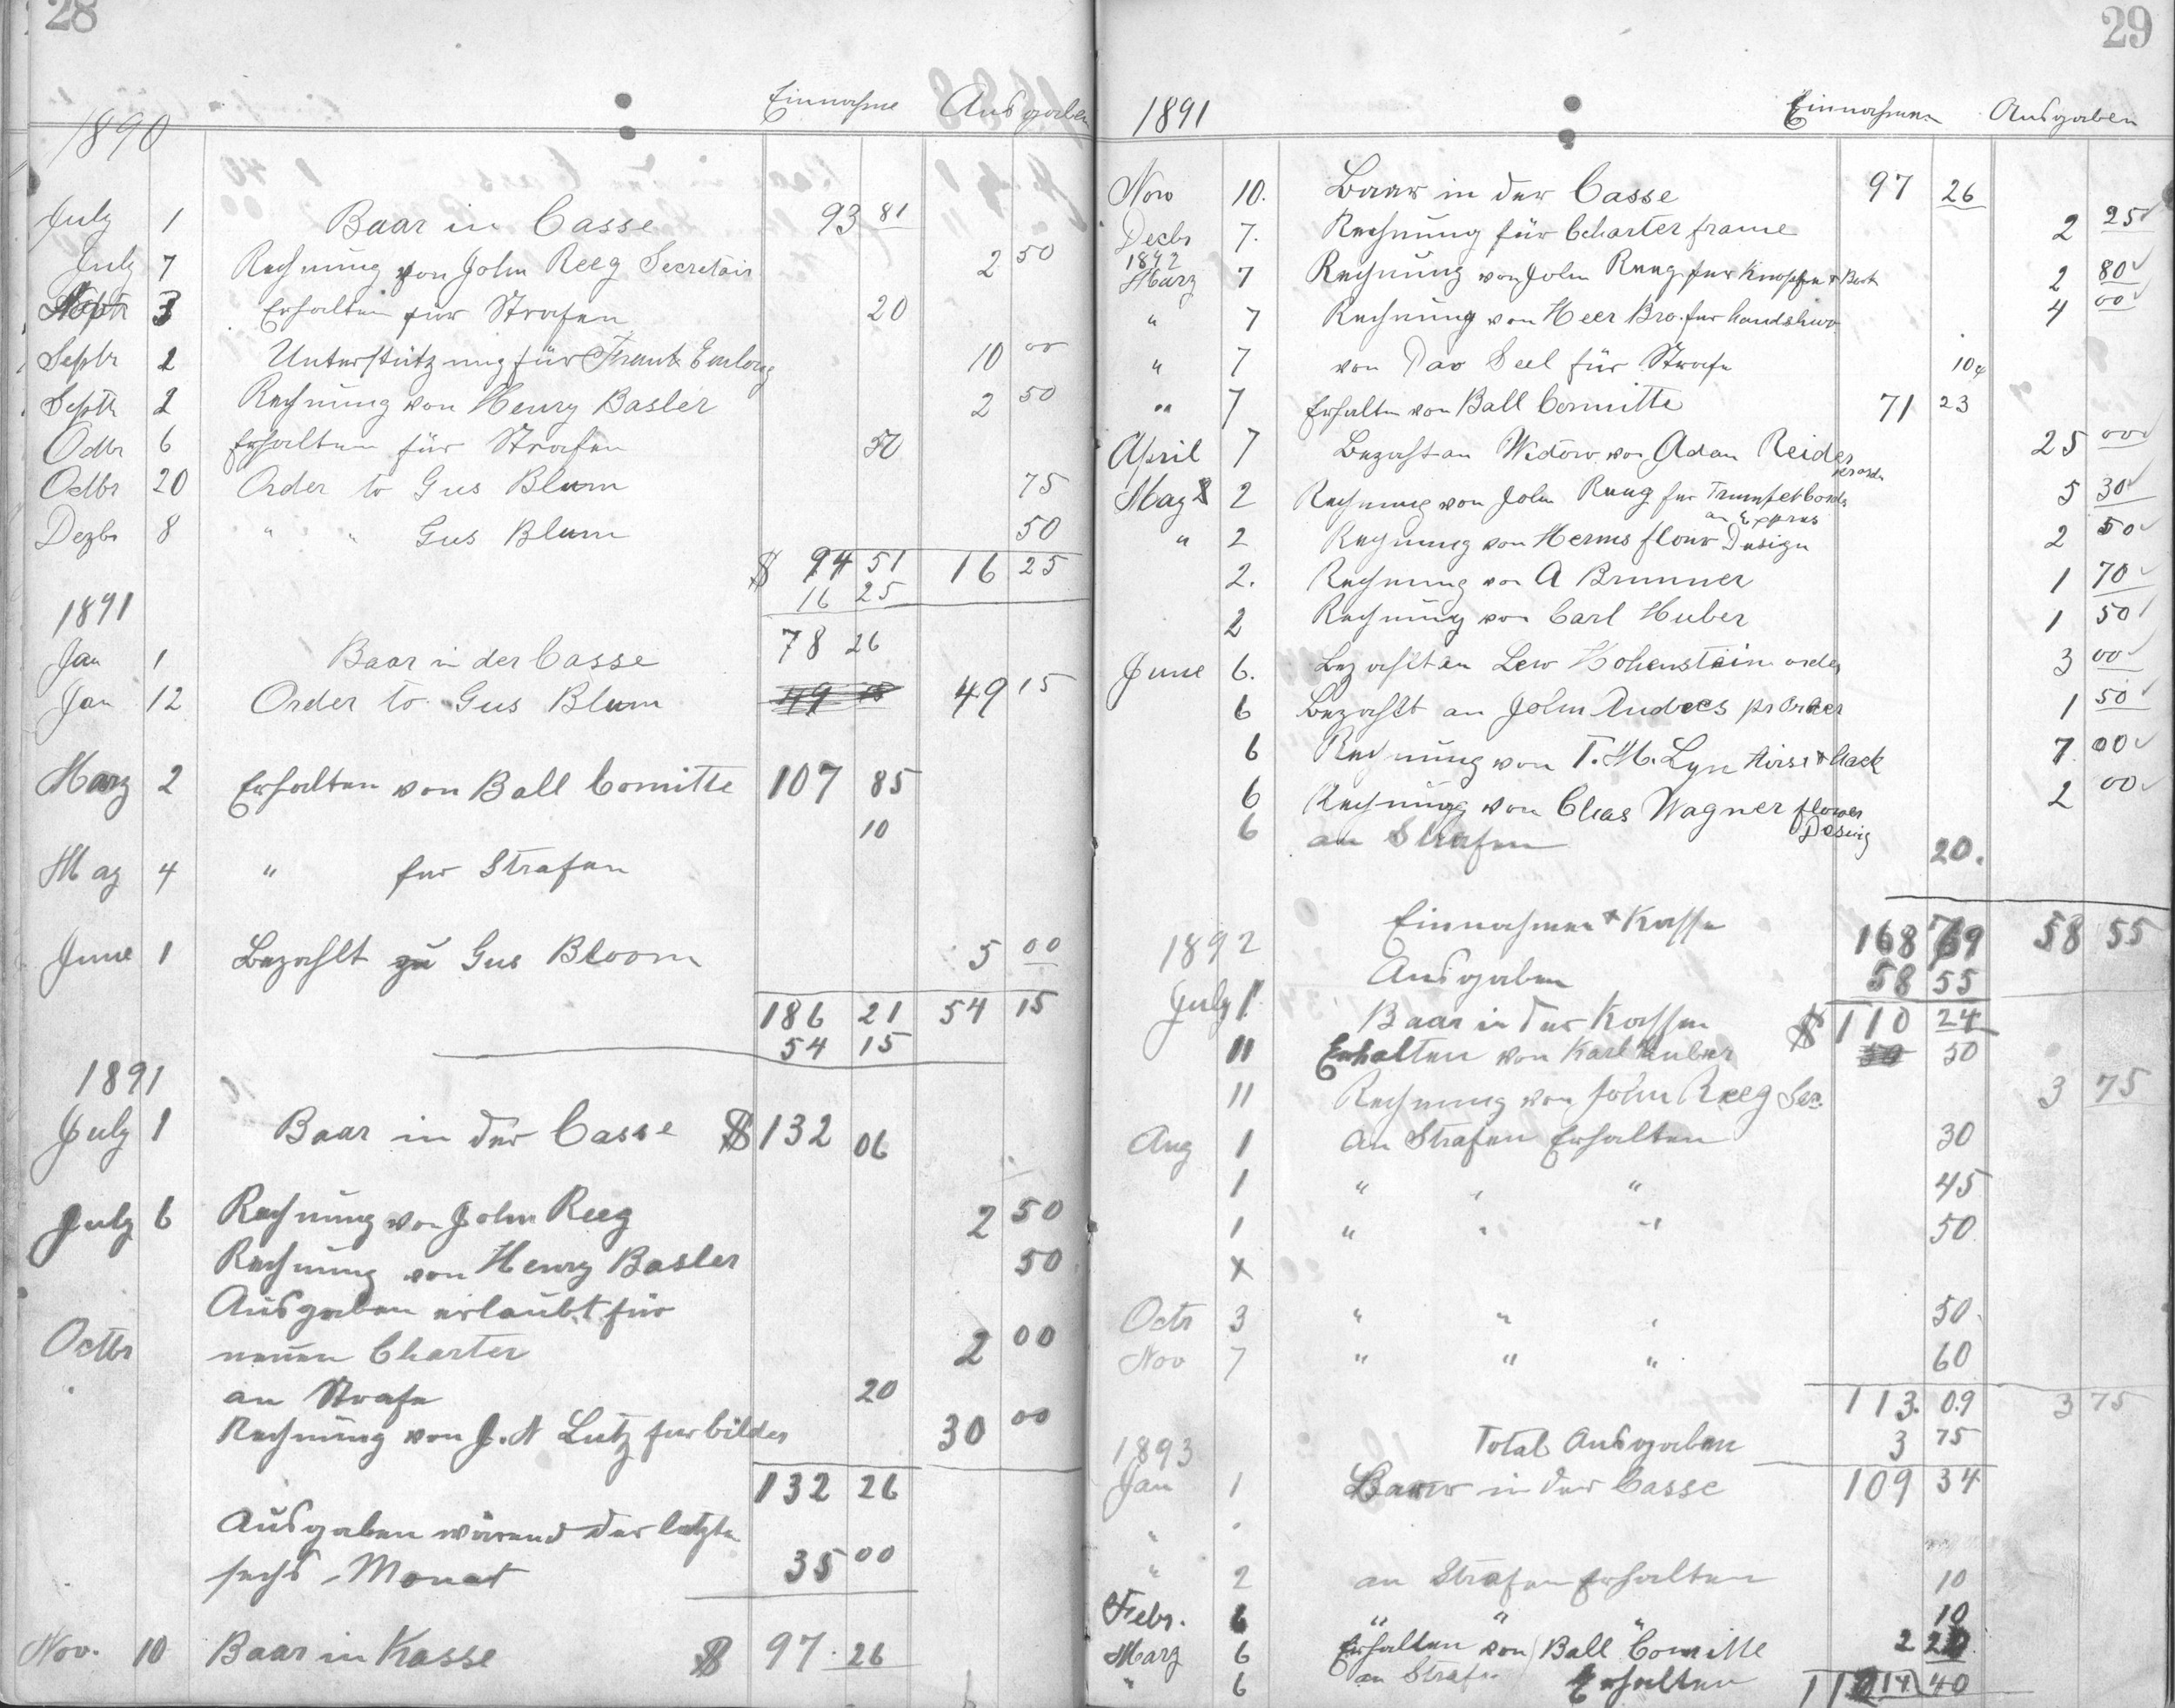 28
Einnahme Ausgaben
1890
July 1 Baar in Casse 93 81
July 7 Rechnung von John Reeg Secretair 2 50
3 Erhalten für Strafen 20
Septbr 2 Unterstützung für Frank 10 00
Septb 2 Rechnung von Henry Basler 2 50
Octbr 6 Erhalten für Strafen 50
Octbr 20 Order to Gus Blum 75
Dezbr 8 " " Gus Blum 50
$ 94 51 16 25
16 25
1891
78 26
Jan 1 Baar in der Casse
Jan 12 Order to Gus Blum 49 15
Marz 2 Erhalten von Ball Comitte 107 85
10
May 4 " fur Strafen
June 1 Bezahlt zu Gus Bloom 5 00
186 21 54 15
54 15
1891
July 1 Baar in der Casse $132 06
July 6 Rechnung von John Reeg 2 50
Rechnung von Henry Basler 50
Ausgaben erlaubt für
Octbr neuen Charter 2 00
an Strafe 20
Rechnung von J. N Lutz fur bilder 30 00
132 26
Ausgaben wärend der letzte
sechs Monat 35 00
Nov. 10 Baar in Kasse $ 97. 26
29
1891 Einnahmen Ausgaben
Nov 10. Baar in der Casse 97 26
Decbr 7. Rechnung für Charter frame 2 25
1892
Marz 7 Rechnung von John Reeg fur Knopfe & 2 80
" 7 Rechnung von Heer Bro. fur 4 00
" 7 von Dav Seel für Strafe 10
" 7 Erhalten von Ball Comitte 71 23
April 7 Bezahlt an Widow von Adam Reider 25 00
May 2 Rechnung von John Reeg fur 5 30
an Expres
" 2 Rechnung von Herms flour Design 2 50
2. Rechnung von A Brunner 1 70
2 Rechnung von Carl Huber 1 50
June 6. Bezahlt an Lew Hohenstein order 3 00
6 Bezahlt an John Andres pr Order 1 50
6 Rechnung von T. M. Lyn Hirse & Hack 7 00
6 Rechnung von Chas Wagner flower 2 00
Desing
6 an Strafen 20.
Einnahmen & Kasse 168 79 58 55
1892 Ausgaben 58 55
July 1. Baar in der Kassen $110 24
11 Erhalten von Karl Huber 50
11 Rechnung von John Reeg Sec. 3 75
Aug 1 an Strafen Erhalten 30
1 " " " 45
1 " " " 50
x
Octr 3 " " " 50
Nov 7 " " " 60
113. 09 3 75
Total Ausgaben 3 75
1893
Jan 1 Baar in der Casse 109 34
"
" 2 an Strafen Erhalten 10
Febr. 6 " " " 10
Marz 6 Erhalten von Ball Comitte 2
" 6 an Strafen Erhalten 40